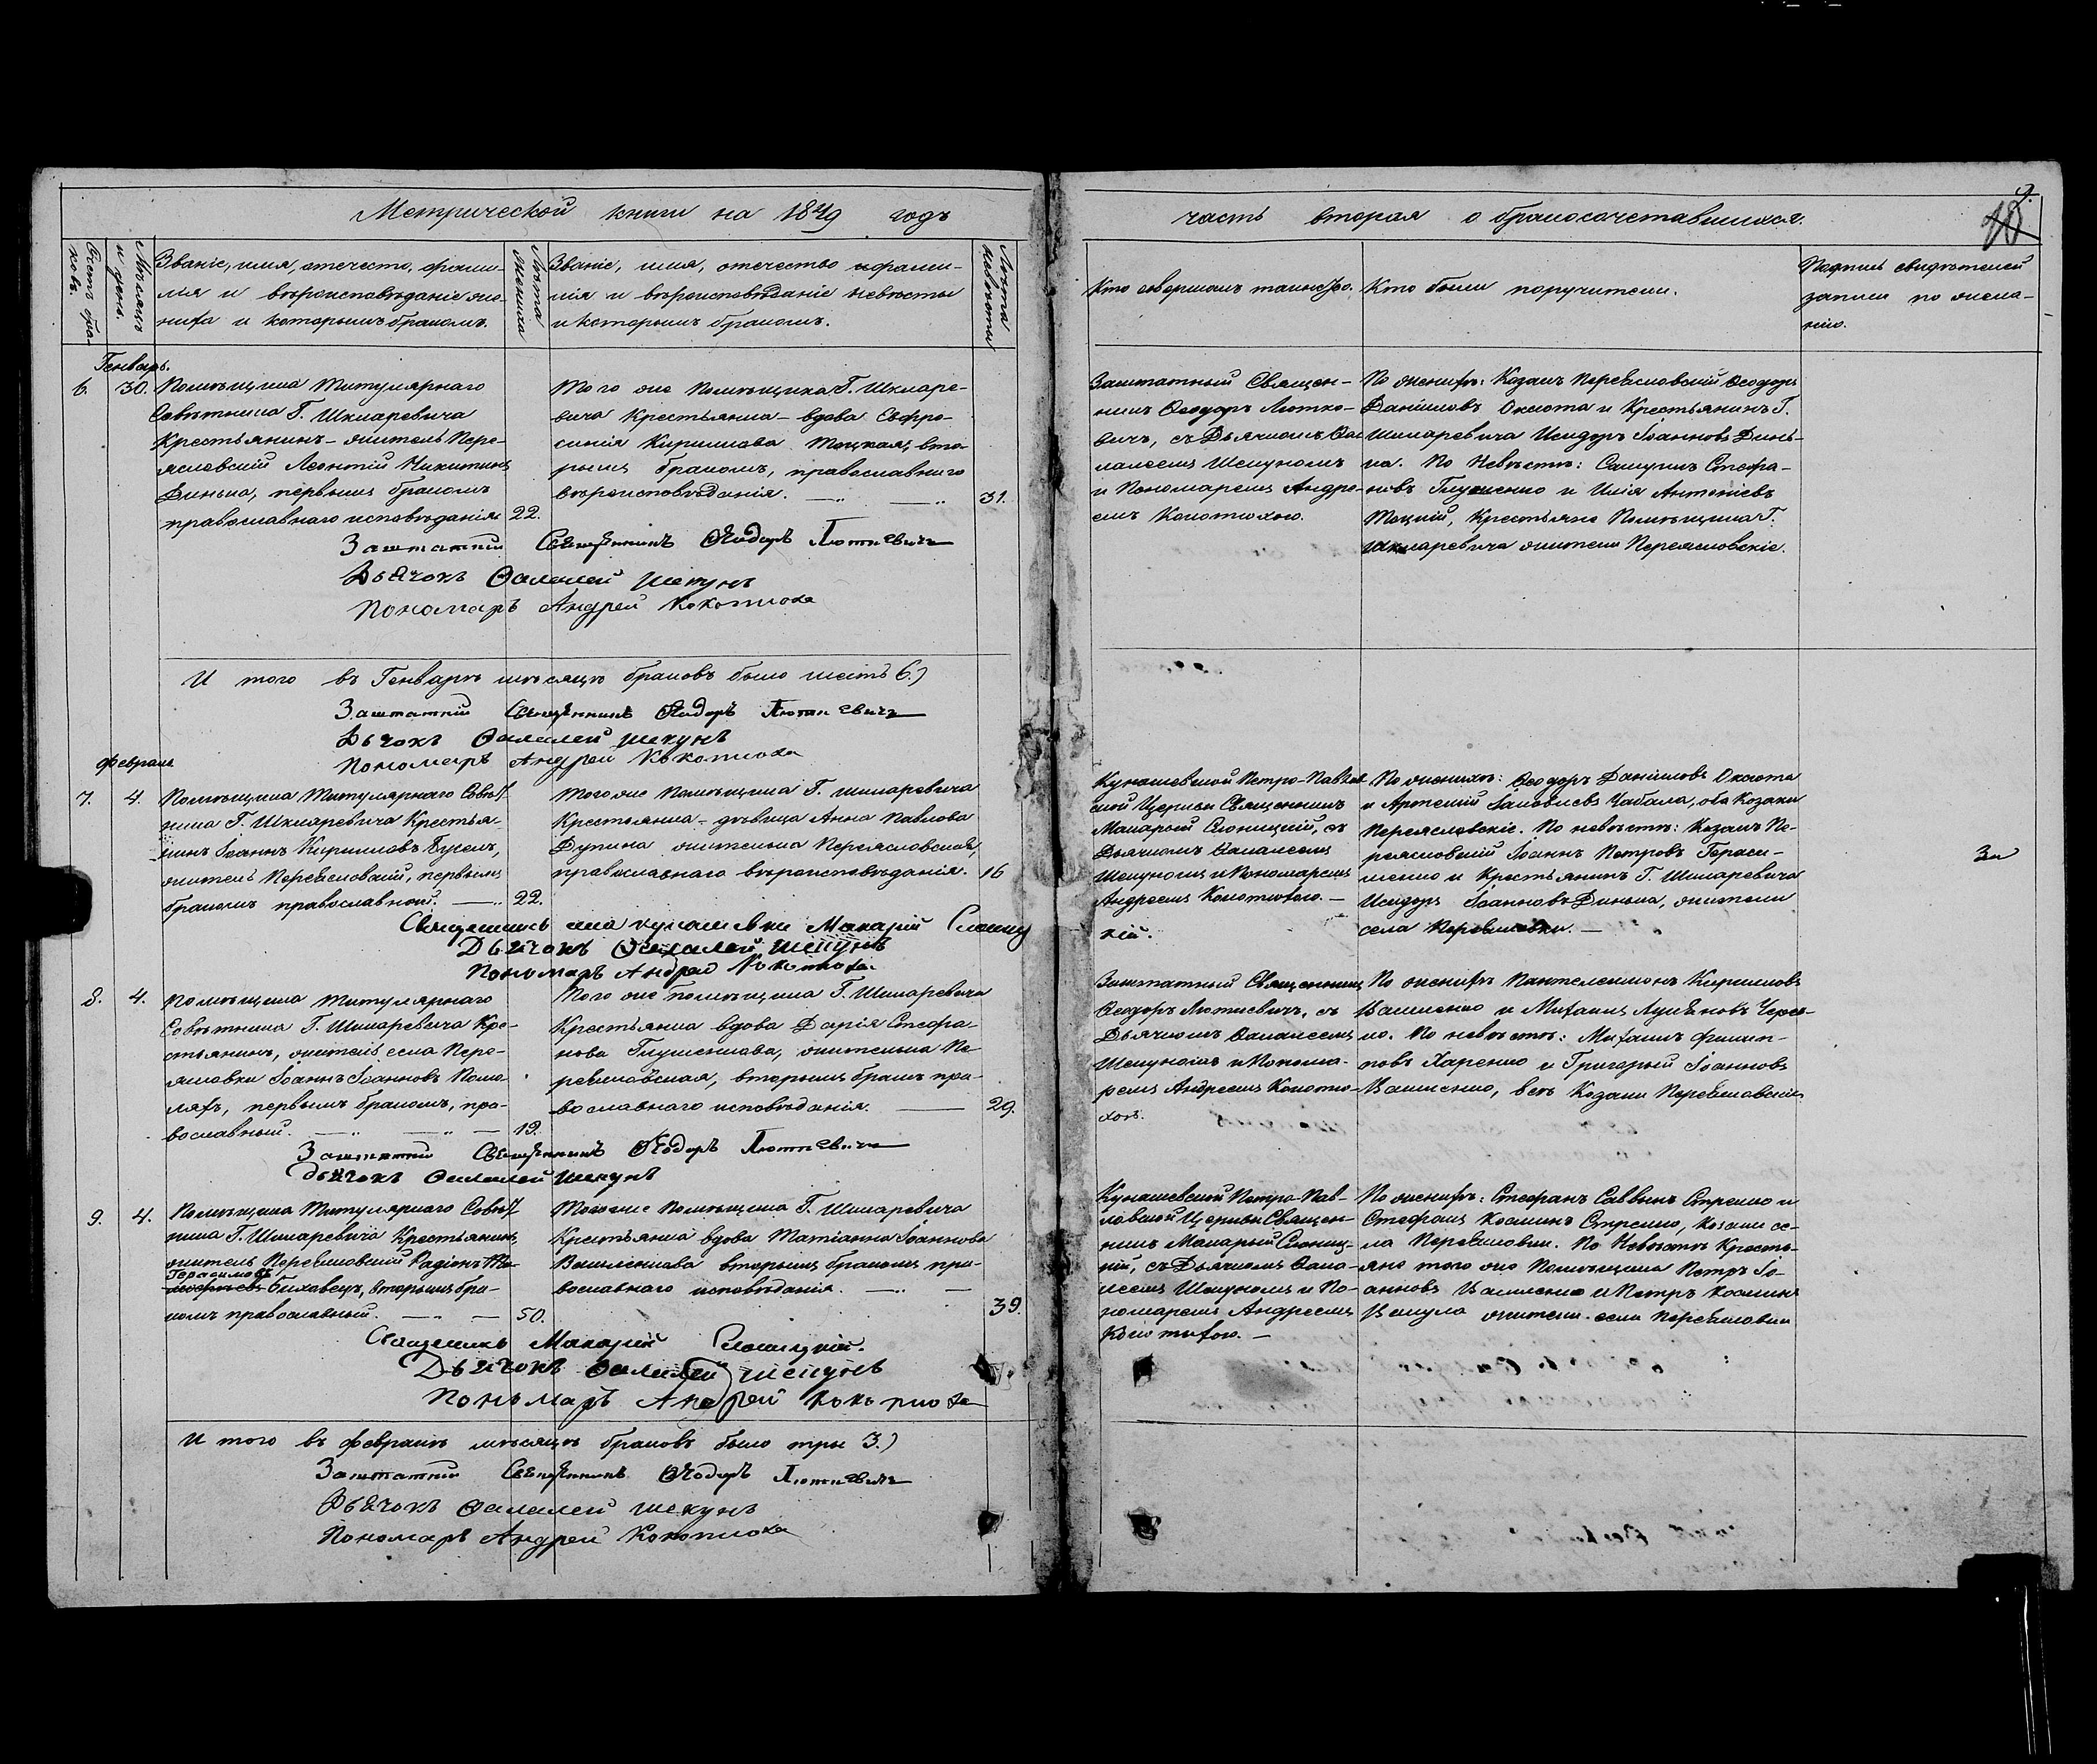 Метрической книги на 1849 годъ
часть вторая о бракосочетавшихся.
9.
10
Счетъ бра-
ковъ.
Мѣсяцъ
и день.
Званіе, имя, отечество, фами-
лія и вѣроисповѣданіе же-
ниха и которымъ бракомъ.
Лѣта
жениха
Званіе, имя, отечество и фами-
лія и вѣроисповѣданіе невѣсты
и которымъ бракомъ.
Лѣта
невѣсты
Кто совершалъ таинство.
Кто были поручители.
Подпись свидѣтелей
записи по жела-
нію.
Генварь.
6. 30.
Помѣщика Титулярнаго
Совѣтника Г. Шкляревича
Крестьянинъ - житель Пере-
яславскій Леонтій Никитинъ
Динька, первымъ бракомъ
православнаго исповѣданія 22.
Того же Помѣщика Г. Шкляре-
вича Крестьянка - вдова Евфро-
синія Кириллова Тоцкая, вто-
рымъ бракомъ, православнаго
вѣроисповѣданія. 31.
Заштатный Священ-
никъ Ѳеодоръ Лютке-
вичъ, съ Дьячкомъ Ѳал
лалеемъ Шекуномъ
и Пономаремъ Андре-
емъ Кокотюхою.
По женихѣ: Козакъ Переясловскій Ѳеодоръ
Даніиловъ Оксюта и Крестьянинъ Г.
Шкляревича Исидоръ Іоанновъ Динь-
ка. По невѣстѣ: Самуилъ Стефа-
новъ Глущенко и Илія Антоніевъ
Тоцкій, Крестьяне Помѣщика Г.
Шкляревича жители Переясловскіе.
Заштатній Священникъ Ѳеодоръ Люткевичъ
Дьячокъ Ѳалалей Шекунъ
Пономарь Андрей Кокотюха
И того въ Генварѣ мѣсяцѣ браковъ было шесть 6.)
Заштатній Священникъ Ѳеодоръ Люткевичъ
Дьячокъ Ѳалалей Шекунъ
Пономарь Андрей Кокотюха
Февраль
7. 4.
Помѣщика Титулярнаго Совѣт-
ника Г. Шкляревича Крестья-
нинъ Іоаннъ Кирилловъ Бусель,
житель Переясловскій, первымъ
бракомъ православный. 22.
Того же Помѣщика Г. Шкляревича
Крестьянка - дѣвица Анна Павлова
Дупина жителька Переясловская,
православнаго вѣроисповѣданія. 16
Кунашевской Петро-Павлов
ской Церкви Священникъ
Макарій Слоницкій, съ
Дьячкомъ Ѳалалеемъ
Шекуномъ и Пономаремъ
Андреемъ Кокотюхою.
По женихѣ: Ѳеодоръ Даніиловъ Оксюта
и Артемій Іаковлевъ Чабала, оба Козаки
Переясловскіе. По невѣстѣ: Козакъ Пе-
реясловскій Іоаннъ Петровъ Гераси-
менко и Крестьянинъ Г. Шкляревича
Исидоръ Іоанновъ Динька, жители
села Переясловки.
Священикъ села кунашевки Макарій Слониц
кій.
Дьячокъ Ѳалалей Шекунъ
Пономарь Андрей Кокотюха
8. 4.
Помѣщика Титулярнаго
Совѣтника Г. Шкляревича Кре-
стьянинъ, житель села Пере-
ясловки Іоаннъ Іоанновъ Поко-
ляхъ, первымъ бракомъ, пра-
вославный. 19.
Того же помѣщика Г. Шкляревича
Крестьянка вдова Дарія Стефа-
нова Глущенкова, жителька Пе-
реясловская, вторымъ бракъ пра-
вославнаго исповѣданія. 29.
Заштатный Священникъ
Ѳеодоръ Люткевичъ, съ
Дьячкомъ Ѳалалеемъ
Шекуномъ и Понома-
ремъ Андреемъ Кокотю-
хою.
По женихѣ Пантелеимонъ Кирилловъ
Михаилъ
ко. По невѣстѣ: Михаилъ Филип-
повъ Харченко и Григорій Іоанновъ
всѣ Козаки Переясловскіе
Заштатній Священникъ Ѳеодоръ Люткевичъ
дьячокъ Ѳалалей Шекунъ
9. 4.
Помѣщика Титулярнаго Совѣт-
ника Г. Шкляревича Крестьянинъ
житель Переясловскій Радіонъ
Герасимовъ
Биховецъ, вторымъ бра-
комъ православный. 50.
Того же Помѣщика Г. Шкляревича
Крестьянка вдова Татіанна Іоаннова
вторымъ бракомъ пра-
вославнаго исповѣданія. 39.
Кунашевской Петро-Пав-
ловской Церкви Священ-
никъ Макарій Слониц-
кій, съ Дьячкомъ Ѳала-
леемъ Шекуномъ и По-
номаремъ Андреемъ
Кокотюхою.
По женихѣ: Стефанъ Саввинъ Стрелко и
Стефанъ Косминъ Стрелко, козаки се-
ла Переясловки. По Невѣстѣ Кресть-
яне того же Помѣщика Петръ Іо-
анновъ и Петръ Косминъ
жители села Переясловки
Священикъ Макарій Слоницкій.
Дьячокъ Ѳалалей Шекунъ
Пономарь Андрей Кокотюха
И того въ Февралѣ мѣсяцѣ браковъ было три 3.)
Заштатній Священникъ Ѳеодоръ Люткевичъ
Дьячокъ Ѳалалей Шекунъ
Пономарь Андрей Кокотюха